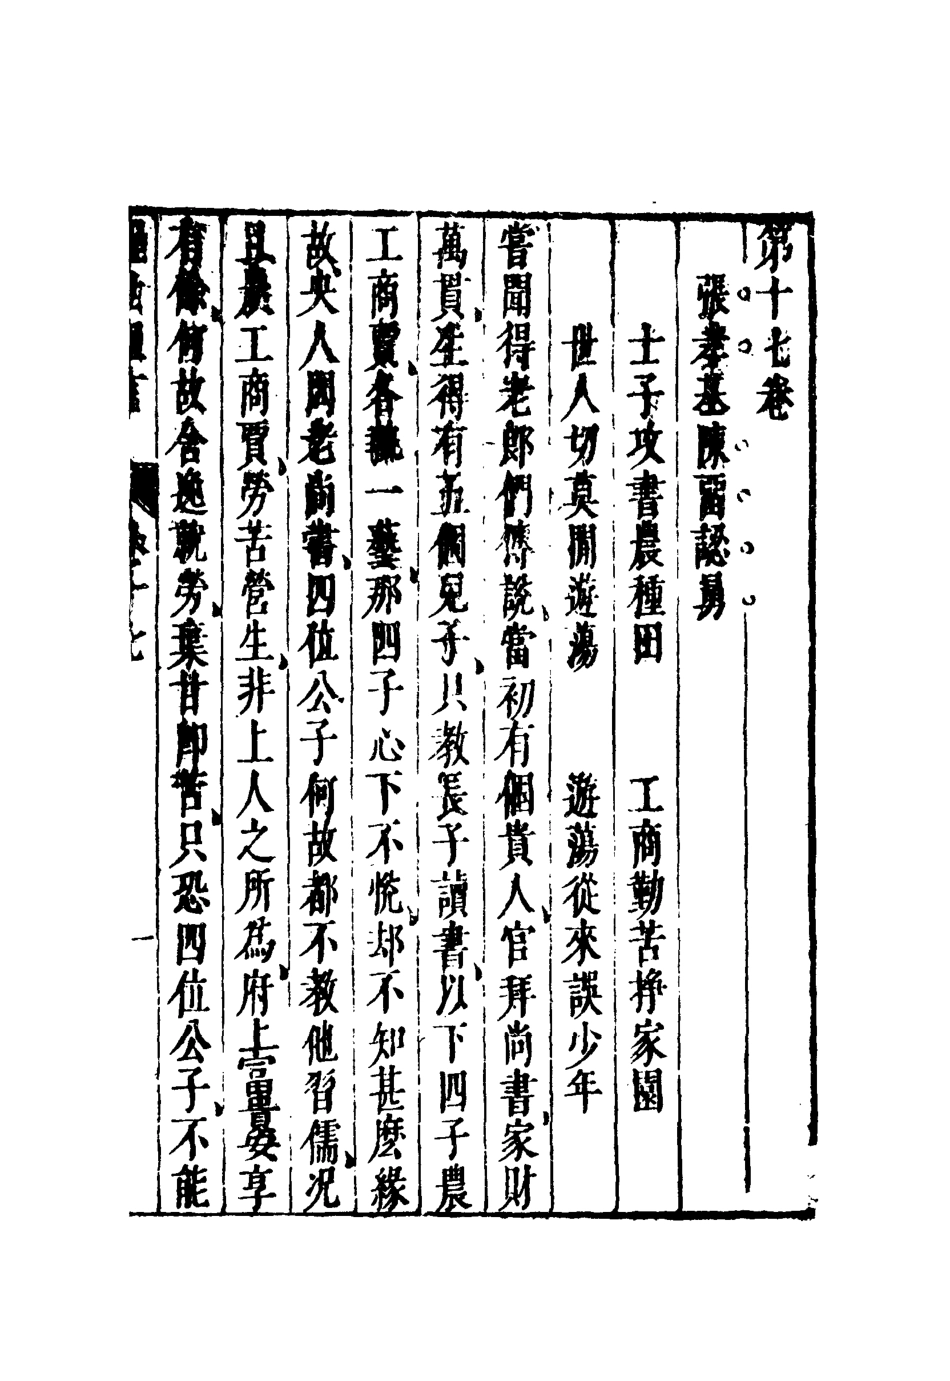 第十七卷
張孝基陳留認舅
士子攻書農種田　工商勤苦掙家園
世人切莫閒遊蕩　遊蕩從來誤少年
嘗聞得老郎們傳說當初有個貴人官拜尚書家財
萬貫生得有五個兒子只教長子讀書以下四子農
工商賈各執一藝那四子心下不悅却不知甚麽緣
故央人問老尚書四位公子何故都不教他習儒况
且農工商賈勞苦營生非上人之所爲府上富貴安享
有餘何故舍逸就勞棄甘即苦只恐四位公子不能